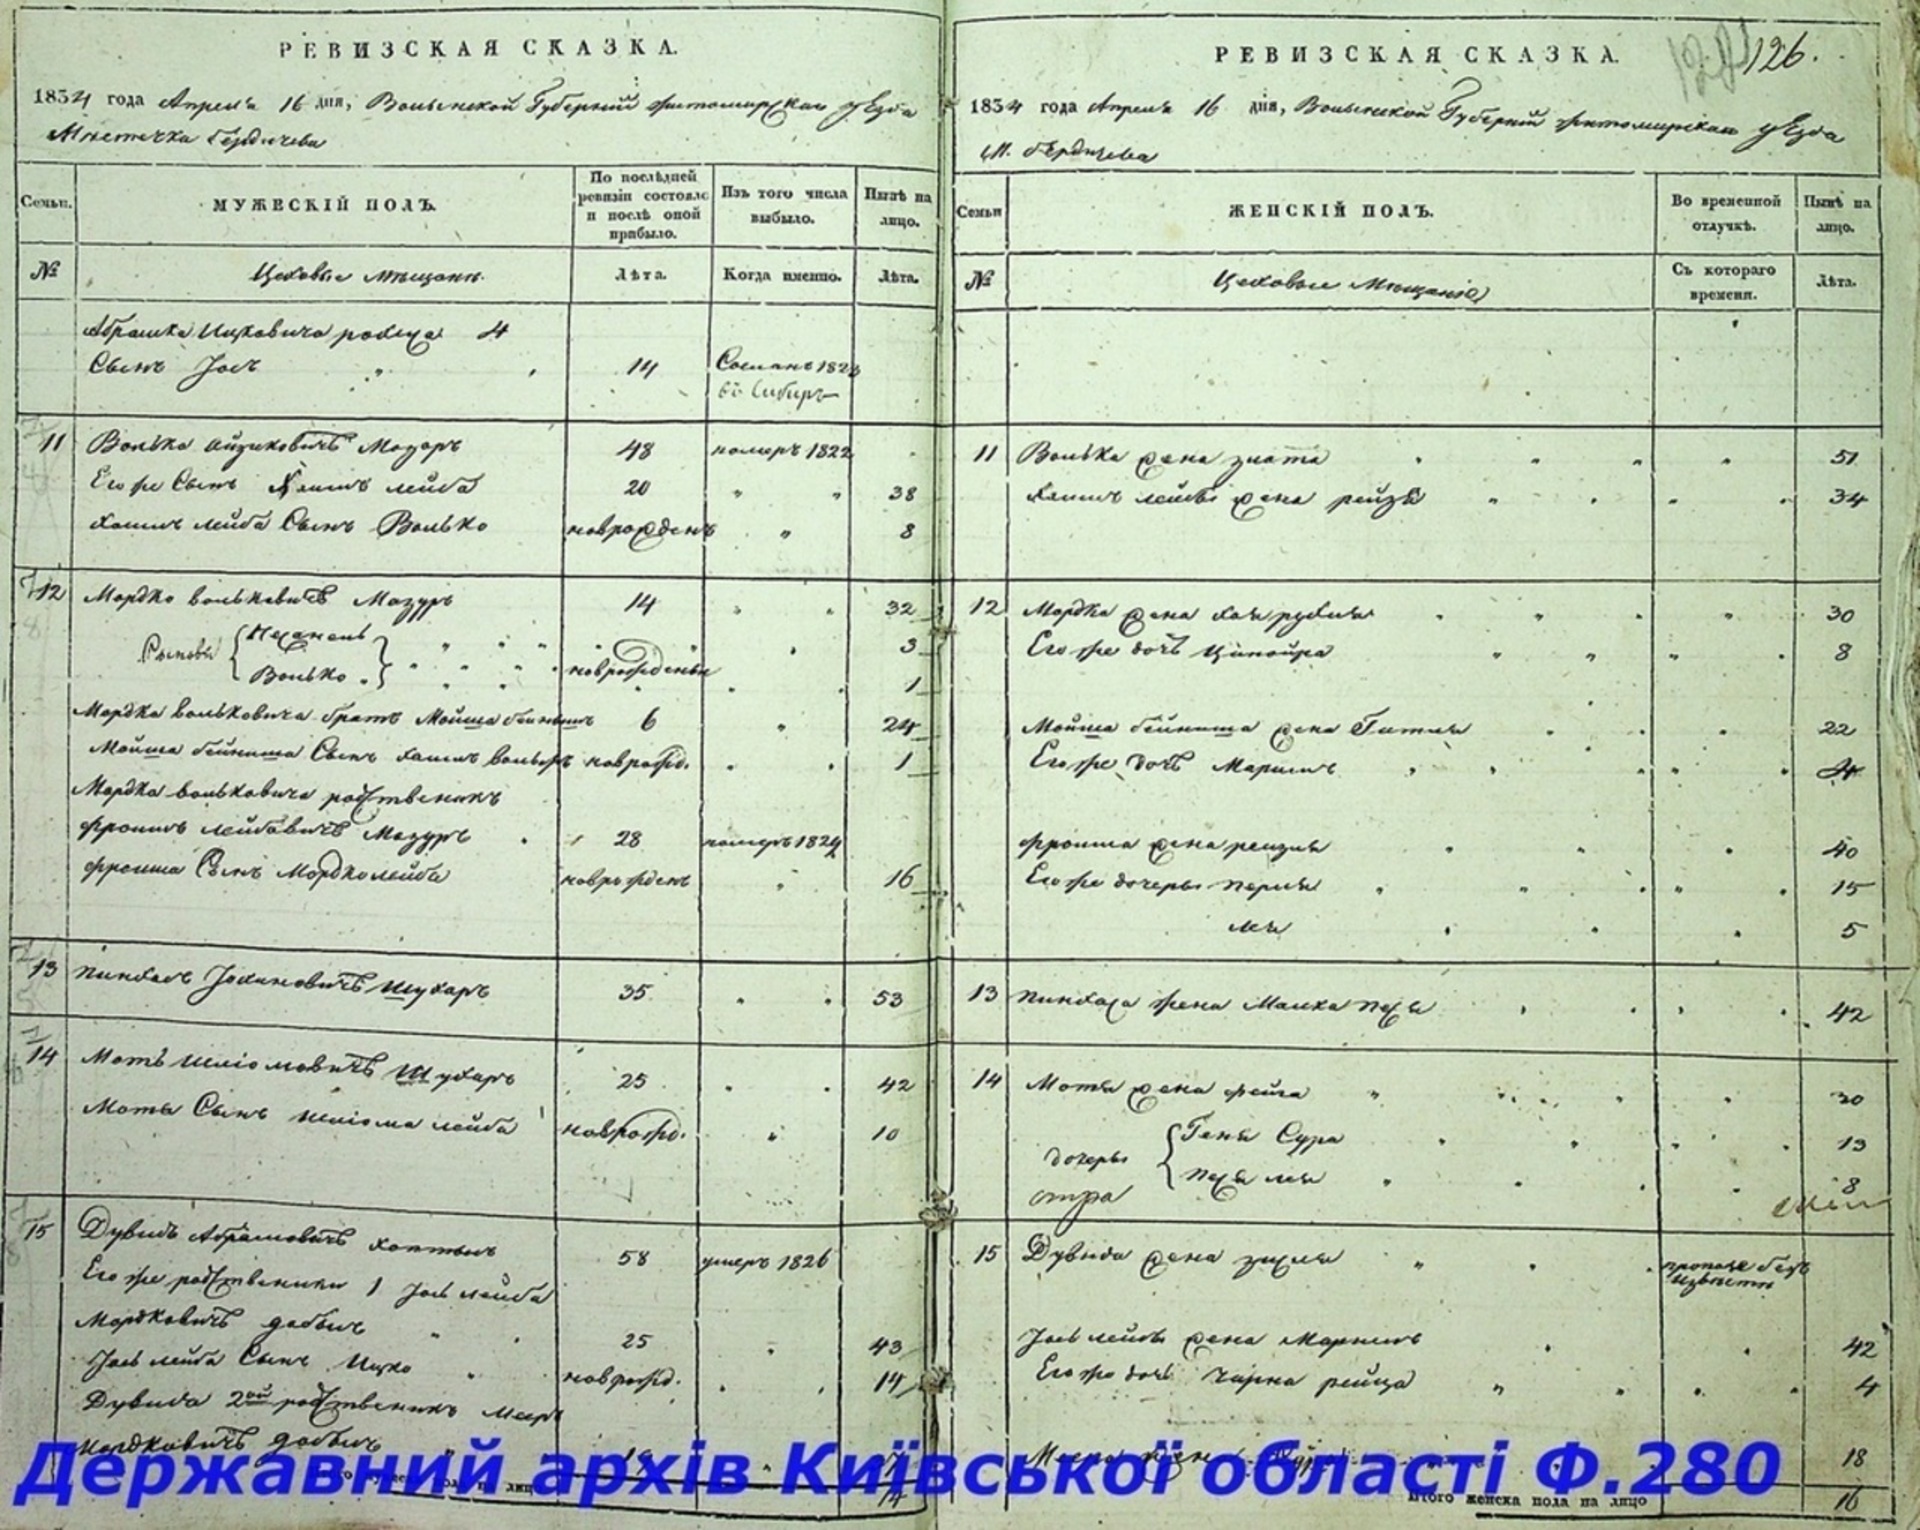 РЕВИЗСКАЯ СКАЗКА.
1834 года Апреля 16 дня, Волынской Губернии Житомирскаго уезда
Местечка Бердичева
Семьи.
МУЖЕСКІЙ ПОЛЪ.
По послѣдней ревизіи состояло и послѣ оной прибыло.
Изъ того числа выбыло.
Нынѣ на лицо.
№
Цеховые мещане.
Лѣта.
Когда именно.
Лѣта.
Абрашка Ицковича 4
Сынъ Іосъ 14 Сосланъ 1823
въ Сибирь
11 Волько Айзиковичъ Мазуръ 48 померъ 1822
Его же Сынъ Хаимъ лейба 20 38
Хаимъ лейба Сынъ Волько новрожденъ 8
12 Мордко вольковичъ Мазуръ 14 32
Сыновья 3
Волько новрожденны 1
Мордка вольковича братъ Мойша бенишъ 6 24
Мойша бейниша Сынъ Хаимъ вольфъ новрожд. 1
Мордка вольковича родственикъ
Фроимъ лейбовичъ Мазуръ 28 померъ 1824
Фроима Сынъ Мордко лейба новрожденъ 16
13 Пинхасъ Шухаръ 35 53
14 Моть Шліомовичъ Шухаръ 25 42
Мотя Сынъ Шліома лейба новрожд. 10
15 Дувидъ Абрамовичъ 58 умеръ 1826
Его же родственики 1 Іось лейба
Мордковичъ 25 43
Іось лейба Сынъ Ицко новрожд. 14
Дувида 2ой родственикъ Меер
Мордковичъ
14
РЕВИЗСКАЯ СКАЗКА.
126.
1834 года Апреля 16 дня, Волынской Губернии Житомирскаго уезда
М. Бердичева
Семьи
ЖЕНСКІЙ ПОЛЪ.
Во временной отлучкѣ.
Нынѣ на лицо.
№
Цеховые Мещане
Съ котораго времени.
Лѣта.
11 Волька жена злата 51
Хаимъ лейбы жена рейзя 34
12 Мордка жена хая рухля 30
Его же дочь Ципойра 8
Мойша бейниша жена Гитля 22
Его же дочь Маріимъ 4
Фроима жена рейзля 40
Его же дочеры перля 15
лея 5
13 Пинхаса жена Малка песя 42
14 Мотя жена фейга 30
дочеры Геня Сура 13
Песя лея 8
15 Дувида жена пропала безъ извѣстія
Іось лейбы жена Маріимъ 42
Его же дочь Чарна рейца 4
Меера жена 18
Итого женска пола на лицо 16
Державний архів Київської області Ф.280